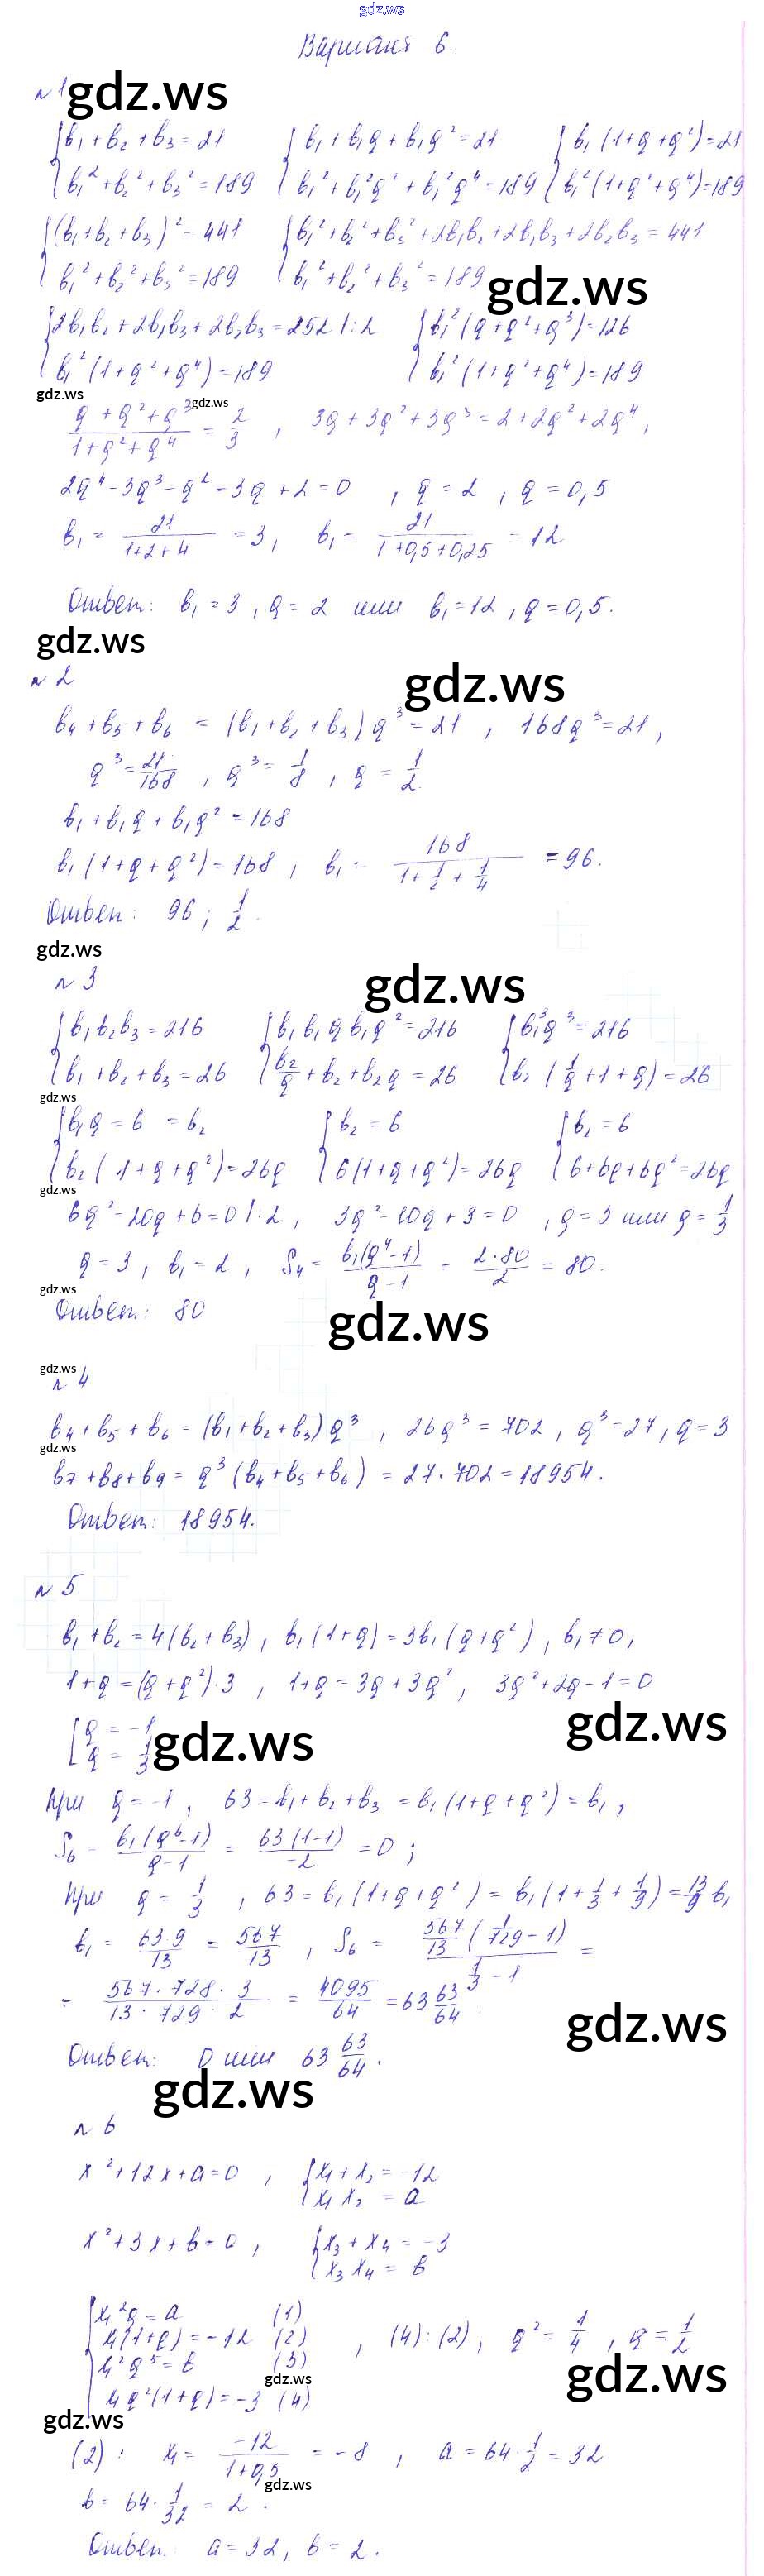 gdz.ws
Вариант 6.
№ 1 gdz.ws
{b₁ + b₂ + b₃ = 21 {b₁ + b₁q + b₁q² = 21 {b₁(1+q+q²) = 21
{b₁² + b₂² + b₃² = 189 {b₁² + b₁²q² + b₁²q⁴ = 189 {b₁²(1+q²+q⁴) = 189
{(b₁+b₂+b₃)² = 441 {b₁²+b₂²+b₃²+2b₁b₂+2b₁b₃+2b₂b₃ = 441
{b₁²+b₂²+b₃² = 189 {b₁²+b₂²+b₃² = 189 gdz.ws
{2b₁b₂+2b₁b₃+2b₂b₃ = 252 |:2 {b₁²(q+q²+q³) = 126
{b₁²(1+q²+q⁴) = 189 {b₁²(1+q²+q⁴) = 189
gdz.ws
(q+q²+q³)/(1+q²+q⁴) = 2/3 , 3q+3q²+3q³ = 2+2q²+2q⁴, gdz.ws
2q⁴-3q³-q²-3q+2=0 , q = 2 , q = 0,5
b₁ = 21/(1+2+4) = 3, b₁ = 21/(1+0,5+0,25) = 12
Ответ: b₁ = 3, q = 2 или b₁ = 12, q = 0,5.
gdz.ws
№ 2 gdz.ws
b₄ + b₅ + b₆ = (b₁+b₂+b₃)q³ = 21 , 168q³ = 21,
q³ = 21/168 , q³ = 1/8 , q = 1/2.
b₁ + b₁q + b₁q² = 168
b₁(1+q+q²) = 168 , b₁ = 168/(1+1/2+1/4) = 96.
Ответ: 96; 1/2.
gdz.ws
№ 3 gdz.ws
{b₁b₂b₃ = 216 {b₁b₁q b₁q² = 216 {b₁³q³ = 216
{b₁+b₂+b₃ = 26 {b₂/q + b₂ + b₂q = 26 {b₂(1/q+1+q) = 26
gdz.ws
{b₁q = 6 = b₂ {b₂ = 6 {b₂ = 6
{b₂(1+q+q²) = 26q {6(1+q+q²) = 26q {6+6q+6q² = 26q
gdz.ws
6q²-20q+6=0 |:2, 3q²-10q+3=0 , q = 3 или q = 1/3
q = 3, b₁ = 2, S₄ = b₁(q⁴-1)/(q-1) = 2·80/2 = 80.
gdz.ws
Ответ: 80 gdz.ws
gdz.ws
№ 4
b₄+b₅+b₆ = (b₁+b₂+b₃)q³ , 26q³ = 702, q³ = 27, q = 3
gdz.ws
b₇+b₈+b₉ = q³(b₄+b₅+b₆) = 27·702 = 18954.
Ответ: 18954.
№ 5
b₁+b₂ = 4(b₂+b₃), b₁(1+q) = 3b₁(q+q²), b₁≠0,
1+q = (q+q²)·3 , 1+q = 3q+3q², 3q²+2q-1=0
[q = -1 gdz.ws
[q = 1/3 gdz.ws
При q = -1, 63 = b₁+b₂+b₃ = b₁(1+q+q²) = b₁,
S₆ = b₁(q⁶-1)/(q-1) = 63(1-1)/-2 = 0;
При q = 1/3 , 63 = b₁(1+q+q²) = b₁(1+1/3+1/9) = 13/9 b₁
b₁ = 63·9/13 = 567/13 , S₆ = 567/13(1/729-1)/(1/3-1) =
= 567·728·3/13·729·2 = 4095/64 = 63 63/64.
gdz.ws
Ответ: 0 или 63 63/64.
gdz.ws
№ 6
x²+12x+a=0 , {x₁+x₂ = -12
{x₁x₂ = a
x²+3x+b=0 , {x₃+x₄ = -3
{x₃x₄ = b
{x₁²q = a (1)
x₁(1+q) = -12 (2) , (4):(2), q² = 1/4 , q = 1/2
x₁²q⁵ = b (3)
gdz.ws gdz.ws
x₁q²(1+q) = -3 (4)
gdz.ws
(2): x₁ = -12/(1+0,5) = -8 , a = 64·1/2 = 32
gdz.ws
b = 64·1/32 = 2.
Ответ: a = 32, b = 2.